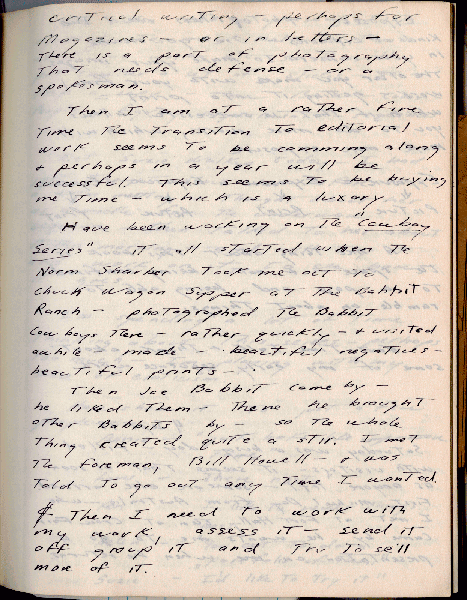 critical writing - perhaps for
Magazines - or in letters -
There is a part of photography
That needs defense - or a
spokisman.
Then I am at a rather fine
Time The Transition To editorial
work seems To be comming along
+ perhaps in a year will be
successful. This seems To be buying
me Time - which is a luxary
Have been working on The "Cowboy
Series" it all started when The
Norm Sharber Took me out To
Chuck Wagon Supper at The Babbit
Ranch - photographed The Babbit
Cowboys There - rather quickly - + visited
awhile - made - beautiful negatives -
beautiful prints -
Then Joe Babbit came by -
he liked Them - Then he brought
other Babbits by - so The whole
Thing created quite a stir. I met
The foreman, Bill Howell - + was
Told To go out any Time I wanted.
Then I need To work with
my work, assess it - send it
off group it and Try To sell
more of it.